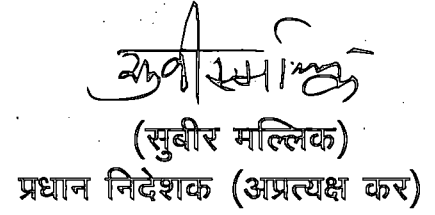 (सुबीर मल्लिक)
प्रधान निदेशक (अप्रत्यक्ष कर)